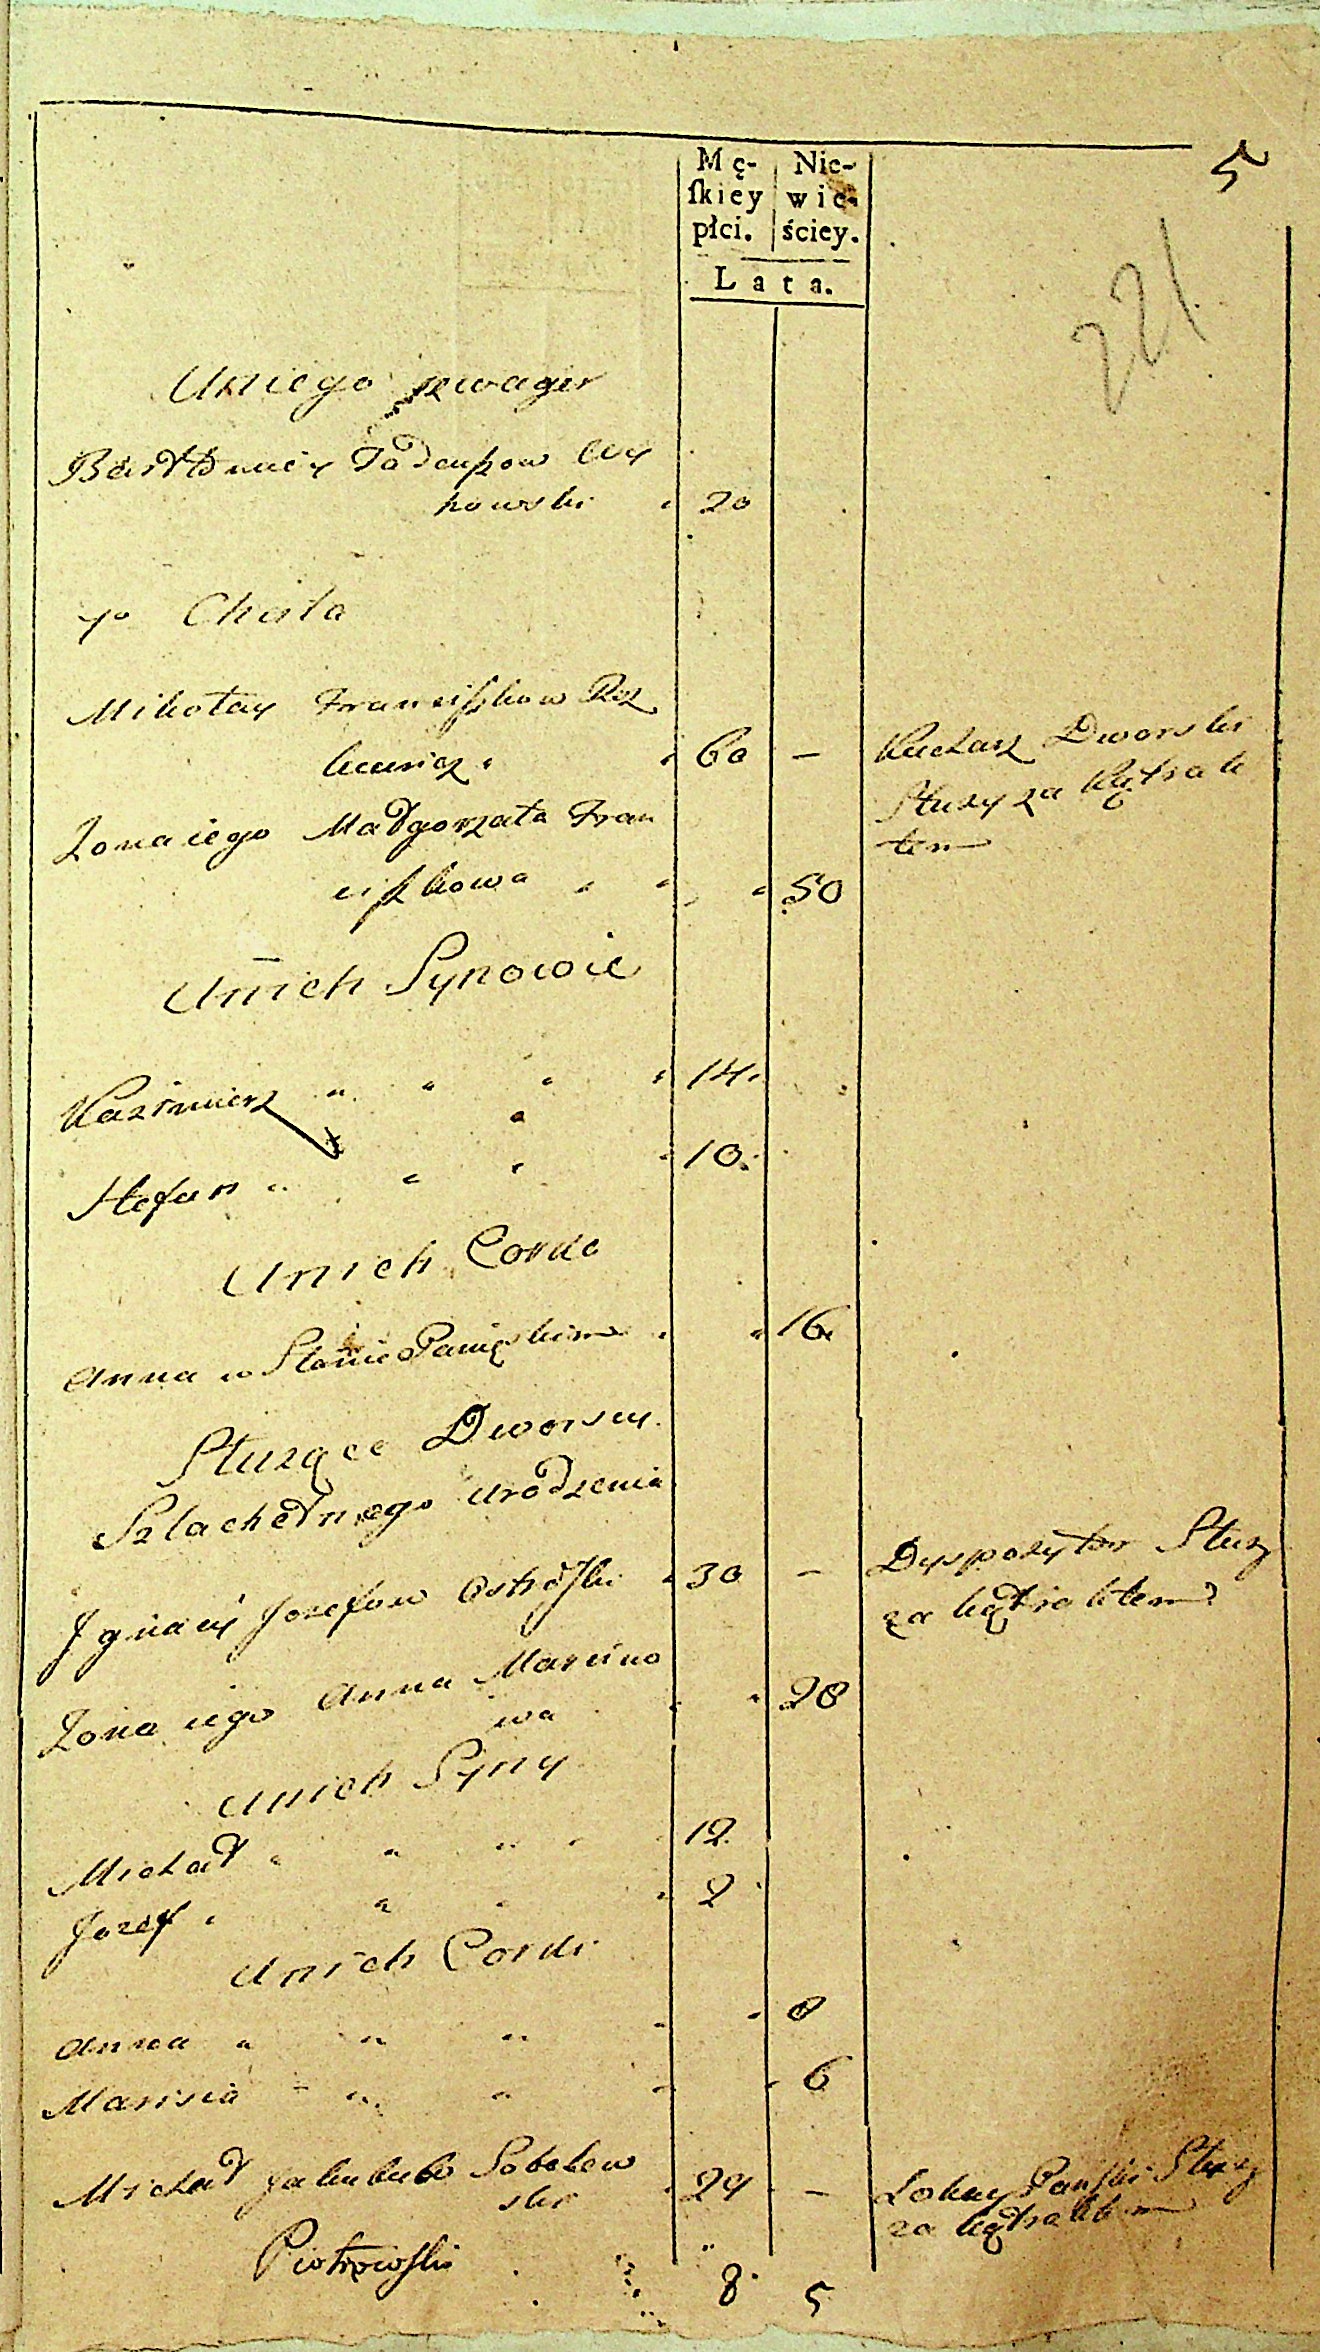 5
Mę-
ſkiey
płci.
Nie-
wie-
ściey.
Lata.
221
Uniego szwagier
Bartłomiey Tadeuszow Wy
howski 20
7o Chata
Mikołay Franciszkow
60 — Kucharz Dworski
Służy za Kątrak
tem
Zona iego Małgorzata Fran
ciszkowa 50
Unich Synowie
Kazimierz 14
Stefan 10
Unich Corka
Anna w Stanie Panięskim 16
Służące Dworscy
Szlachetnego urodzenia
Jgnacy Jozefow Ostroski 30 — Dyspozytor Służy
za kątraktem
Zona iego Anna Marcino
wa 28
Unich Syny
Michał 12
Jozef 2
Unich Corki
Anna 8
Marisia 6
Michał Jakubow Sobolew
ski 24 — Lokay Pański Służy
za kątraktem
Piotrowski
8 5